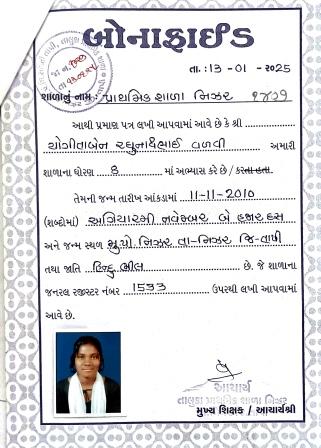 બોનાફાઈડ
તા. : 13 - 01 - 2025
શાળાનું નામ : પ્રાથમિક શાળા નિઝર
આથી પ્રમાણ પત્ર લખી આપવામાં આવે છે કે શ્રી
યોગીતાબેન રઘુનાથભાઈ વળવી અમારી
શાળાના ધોરણ 8 માં અભ્યાસ કરે છે / કરતા હતા.
તેમની જન્મ તારીખ આંકડામાં 11-11-2010
(શબ્દોમાં) અગિયારમી નવેમ્બર બે હજાર દસ
અને જન્મ સ્થળ મુ.પો. નિઝર તા-નિઝર જિ-તાપી
તથા જાતિ હિન્દુ ભીલ છે. જે શાળાના
જનરલ રજીસ્ટર નંબર 1533 ઉપરથી લખી આપવામાં
આવે છે.
આચાર્ય
તાલુકા પ્રાથમિક શાળા નિઝર
મુખ્ય શિક્ષક / આચાર્યશ્રી